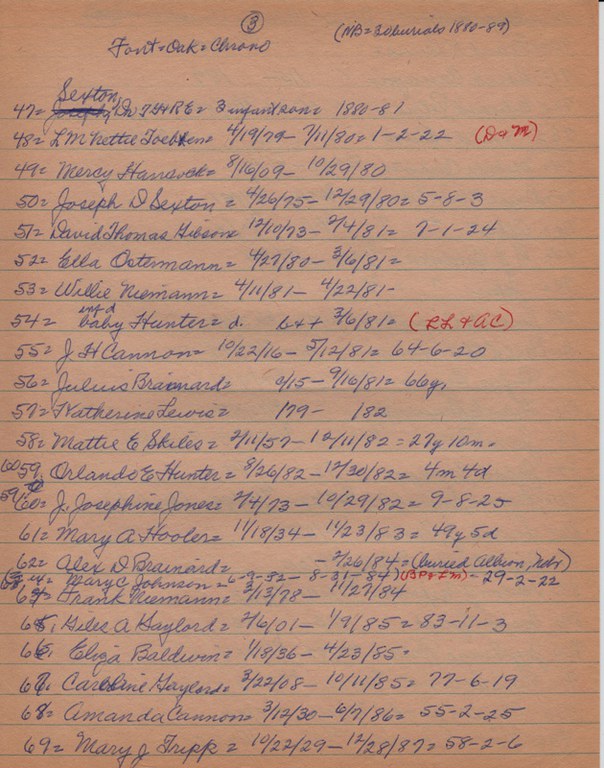 ③
(NB=20 burials 1880-89)
Font=Oak=Chrono
Sexton,
47= Dr T H & R E = 3 infant sons 1880-81
48= L M Nettie = 4/19/79 - 7/11/80 = 1-2-22 (D & M)
49= Mercy = 8/16/09 - 10/29/80
50= Joseph D Sexton = 4/26/75 - 12/29/80 = 5-8-3
51= David Thomas Gibson = 12/10/73 - 2/4/81 = 7-1-24
52= Ella Ostermann = 4/27/80 - 3/6/81 =
53= Willie Niemann = 4/11/81 - 4/22/81 -
inf d
54= baby Hunter = d. b & + 3/6/81 = (L L & A C)
55= J H Cannon = 10/22/16 - 5/12/81 = 64-6-20
56= Julius Brainard = /15 - 9/16/81 = 66y.
57= Katherine Lewis = 179 - 182
58= Mattie E Skiles = 2/11/57 - 12/11/82 = 27y 10m =
59. Orlando E Hunter = 8/26/82 - 12/30/82 = 4m 4d
60= J. Josephine Jones = 2/4/73 - 10/29/82 = 9-8-25
61= Mary A Hooler = 11/18/34 - 11/23/83 = 49y 5d
62= Alex D Brainard = - 2/26/84 = (buried Albion, Nebr)
Mary C Johnson = 6-9-32 - 8-31-84) - 29-2-22
Frank Niemann = 2/13/78 - 11/27/84
65, Giles A Gaylord = 2/6/01 - 1/9/85 = 83-11-3
66, Eliza Baldwin = 1/18/36 - 4/23/85 =
67, Caroline Gaylord = 3/22/08 - 10/11/85 = 77-6-19
68= Amanda Cannon = 3/12/30 - 6/7/86 = 55-2-25
69= Mary J Tripp = 10/22/29 - 12/28/87 = 58-2-6